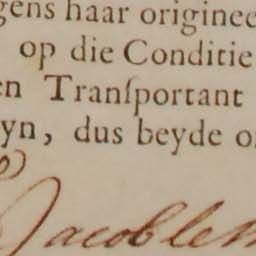 gens haar originee
op die Conditie
en Tranſportant
yn, dus beyde o
Jacob le